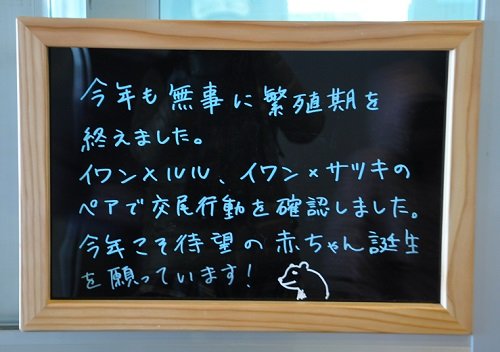 今年も無事に繁殖期を
終えました。
イワン×ルル、イワン×サツキの
ペアで交尾行動を確認しました。
今年こそ待望の赤ちゃん誕生
を願っています!